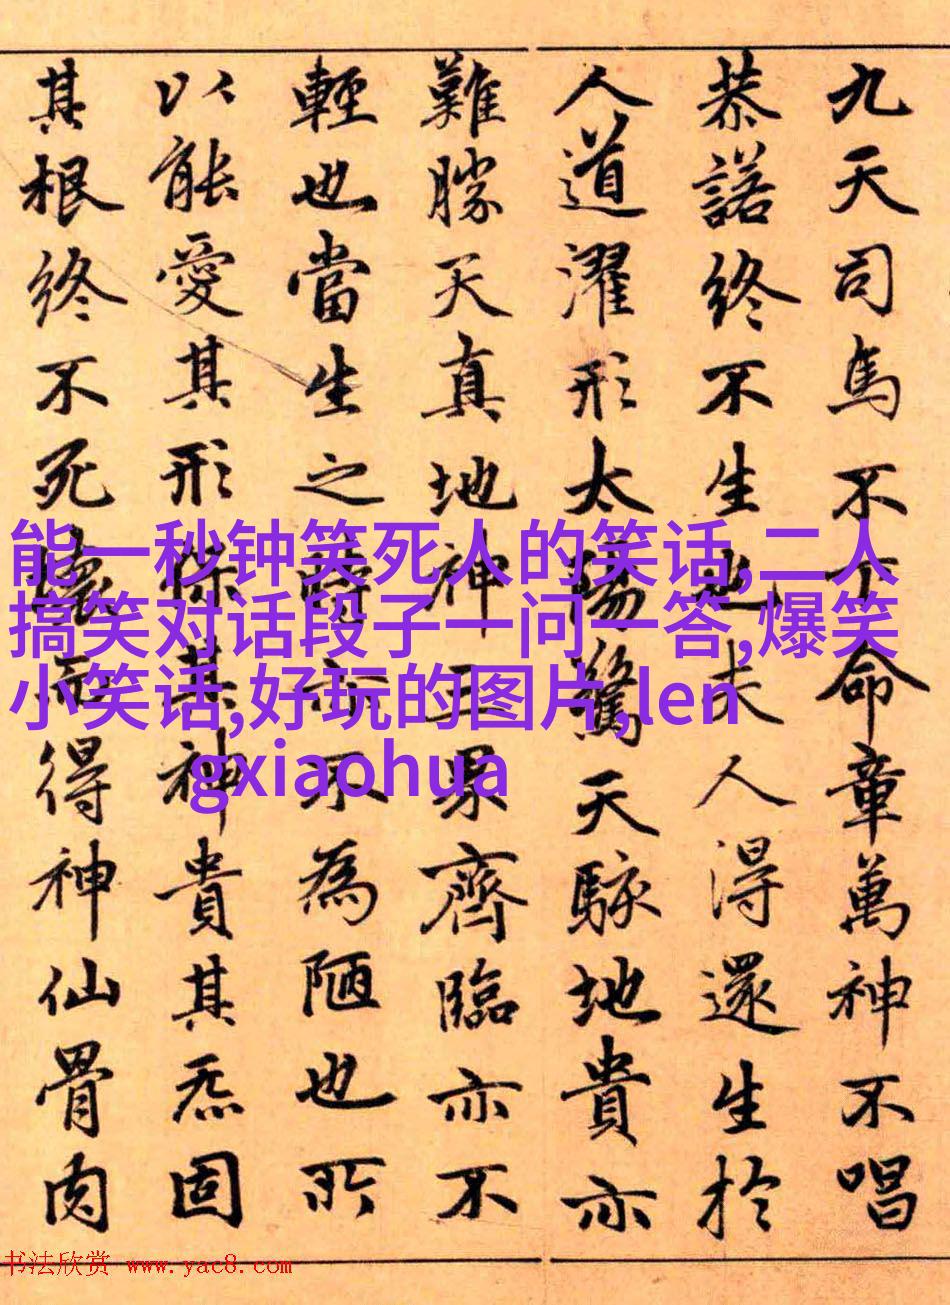 九天司馬不下命章萬神不唱
恭諾終不生也夫人得還生於
人道濯形太陽驚天駭地貴亦
難勝天真地神三界齊臨亦不
輕也當生之時亦不為陋也所
以能愛其形保其神貴其炁固
其根終不死壞而得神仙骨肉
能一秒钟笑死人的笑话,二人
搞笑对话段子一问一答,爆笑
小笑话,好玩的图片,len
gxiaohua
书法欣赏 www.yac8.com